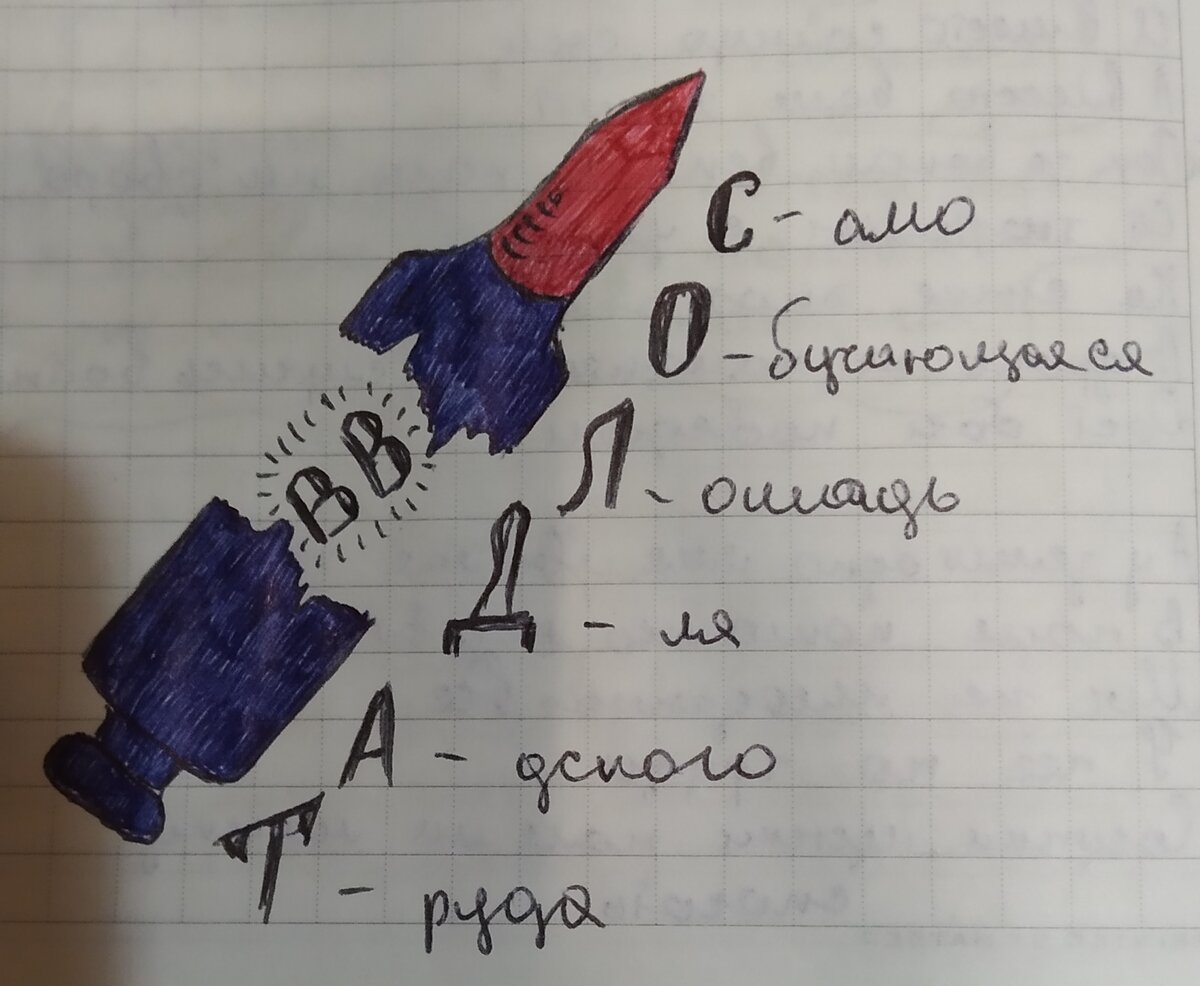 С - амо
О - бучающаяся
Л - ошадь
ВВ
Д - ля
А - дского
Т - руда